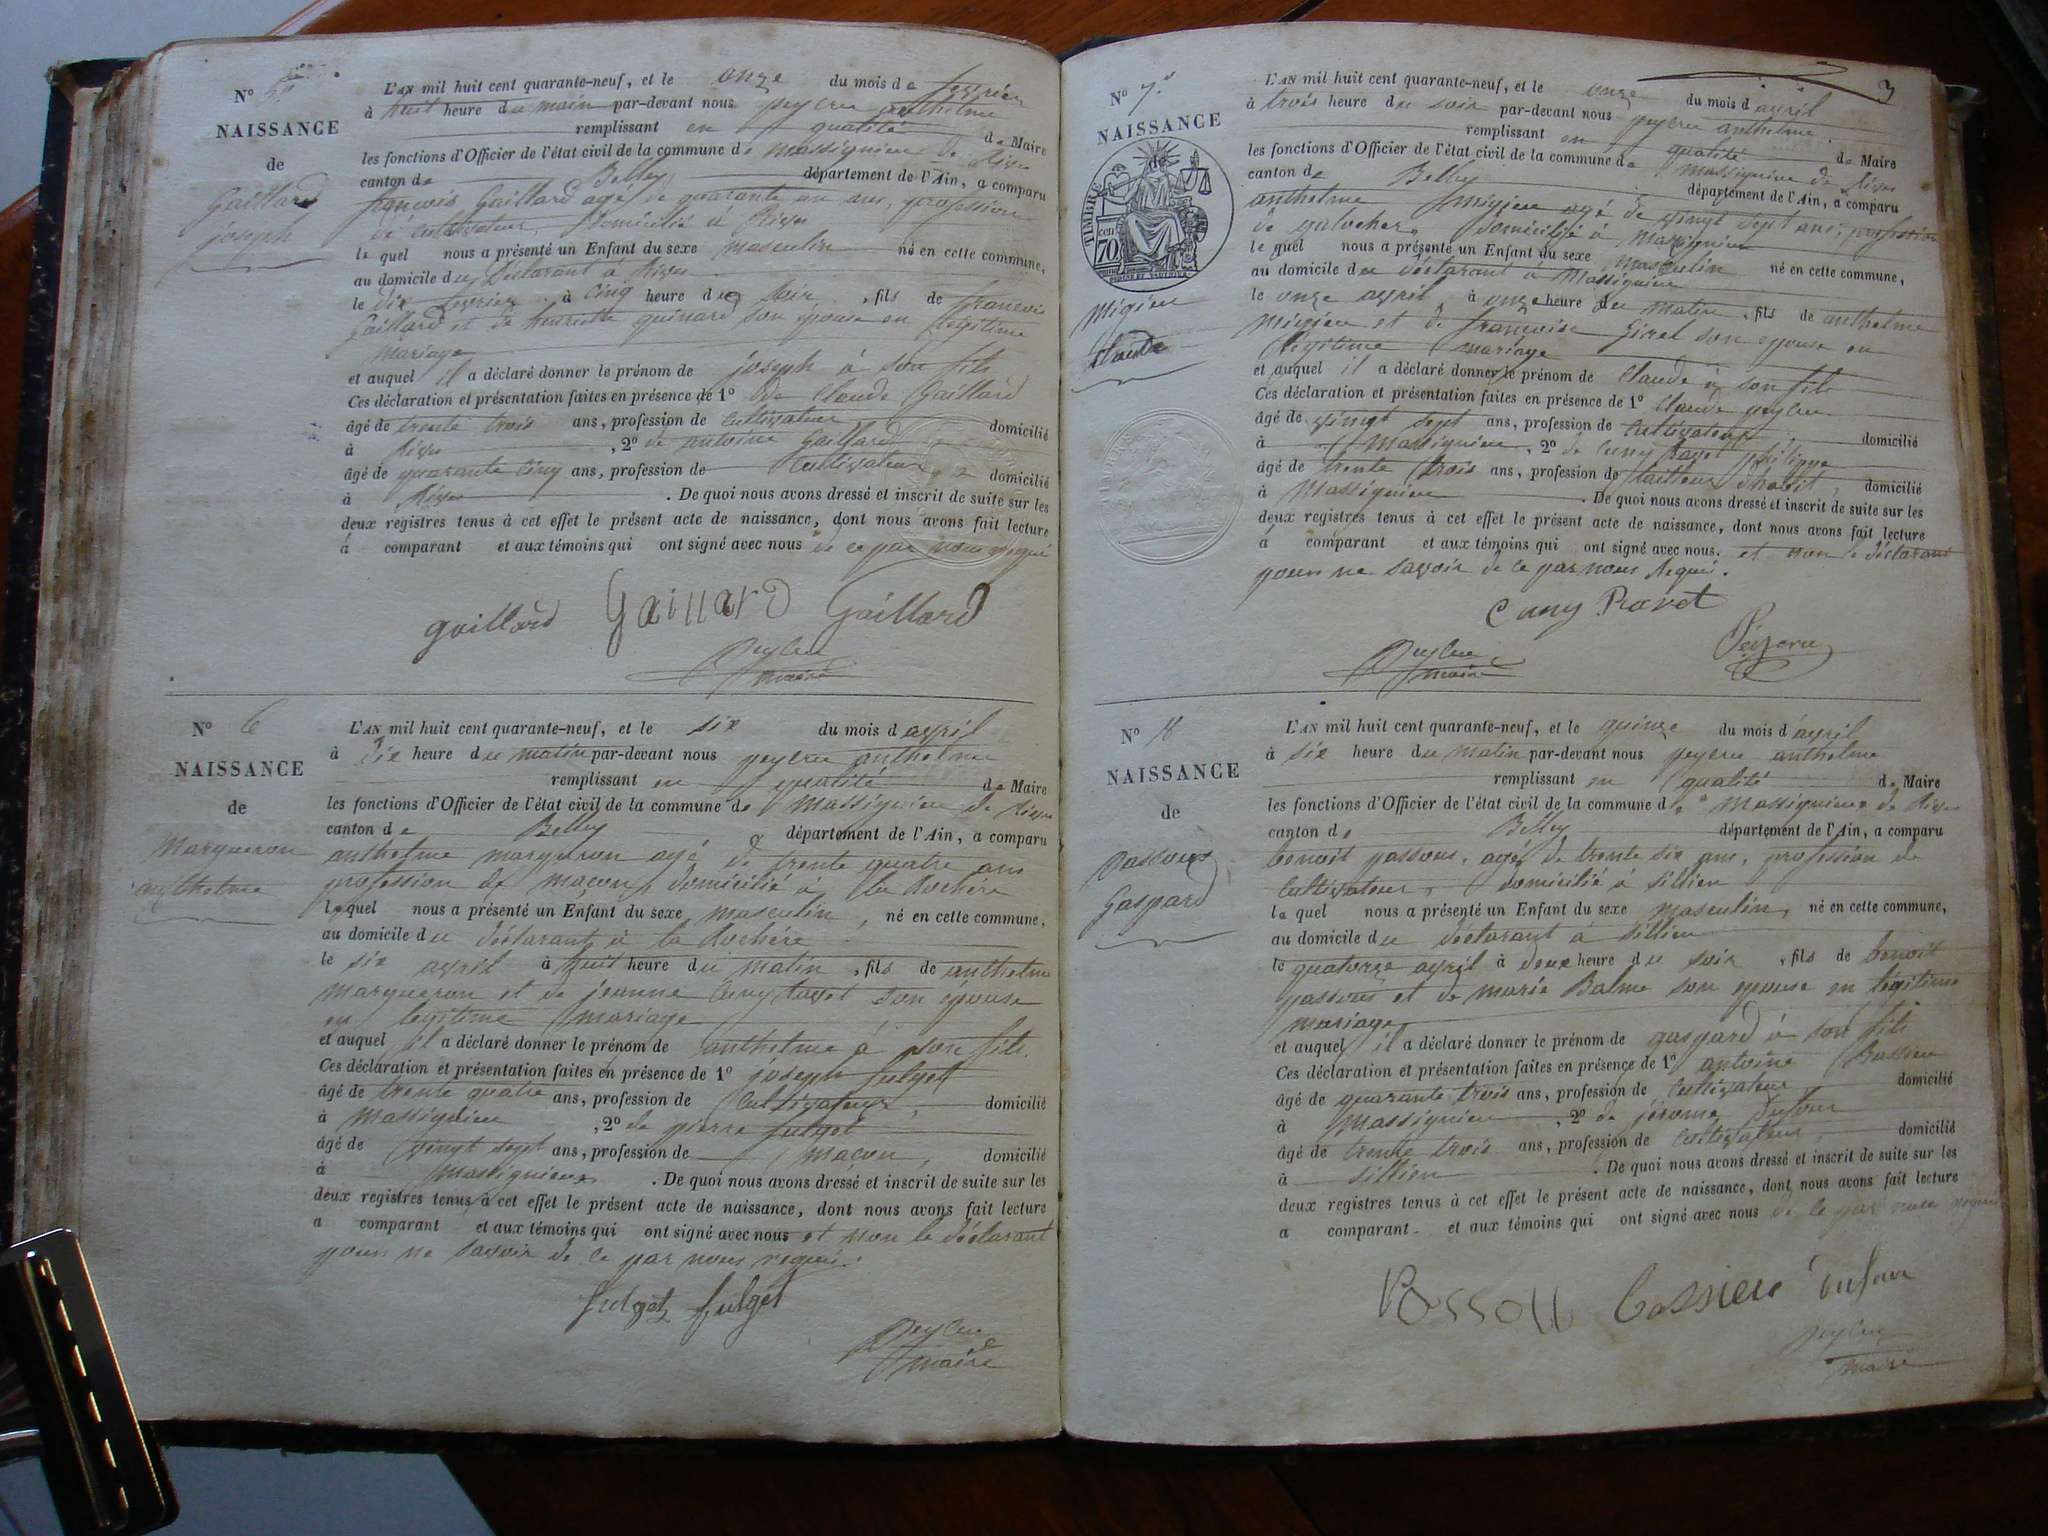 N° 5
NAISSANCE
de
Gaillard
joseph
L'AN mil huit cent quarante-neuf, et le onze du mois de fevrier
à huit heure du main par-devant nous peycru anthelme
remplissant en qualité de Maire
les fonctions d'Officier de l'état civil de la commune de massignieu de Rives
canton de Belley département de l'Ain, a comparu
françois Gaillard agé de quarante un ans, profession
de cultivateur, domicilié à Rives
le quel nous a présenté un Enfant du sexe masculin né en cette commune,
au domicile du Déclarant à Rives
le dix fevrier à cinq heure du soir, fils de francois
Gaillard et de henriette quinard son epouse en legitime
mariage
et auquel il a déclaré donner le prénom de joseph à son fils
Ces déclaration et présentation faites en présence de 1° de Claude Gaillard
âgé de trente trois ans, profession de cultivateur domicilié
à Rives, 2° de antoine Gaillard
âgé de quarante cinq ans, profession de Cultivateur domicilié
à Rives. De quoi nous avons dressé et inscrit de suite sur les
deux registres tenus à cet effet le présent acte de naissance, dont nous avons fait lecture
à comparant et aux témoins qui ont signé avec nous de ce par nous requi
gaillard Gaillard Gaillard
Peycru
maire
N° 6
NAISSANCE
de
Margueron
anthelme
L'AN mil huit cent quarante-neuf, et le six du mois d'avril
à dix heure du matin par-devant nous peycru anthelme
remplissant en qualité de Maire
les fonctions d'Officier de l'état civil de la commune de massignieu de Rives
canton de Belley département de l'Ain, a comparu
anthelme margueron agé de trente quatre ans
profession de maçon, domicilié à la Rochère
lequel nous a présenté un Enfant du sexe masculin, né en cette commune,
au domicile du déclarant à la Rochère
le six avril à huit heure du matin, fils de anthelme
margueron et de jeanne Cuny ravet son épouse
en legitime mariage
et auquel il a déclaré donner le prénom de anthelme à son fils.
Ces déclaration et présentation faites en présence de 1° joseph fulget
âgé de trente quatre ans, profession de Cultivateur, domicilié
à massignieu, 2° de pierre fulget
âgé de vingt sept ans, profession de maçon, domicilié
à massignieu. De quoi nous avons dressé et inscrit de suite sur les
deux registres tenus à cet effet le présent acte de naissance, dont nous avons fait lecture
a comparant et aux témoins qui ont signé avec nous et non le déclarant
pour ne savoir de ce par nous requi.
fulget fulget
Peycru
maire
3
N° 7
NAISSANCE
de
TIMBRE
70 cen
Migieu
claude
L'AN mil huit cent quarante-neuf, et le onze du mois d avril
à trois heure du soir par-devant nous peycru anthelme
remplissant en qualité de Maire
les fonctions d'Officier de l'état civil de la commune de massignieu de Rives
canton de Belley département de l'Ain, a comparu
anthelme migieu agé de vingt sept ans, profession
de galocher, domicilié à massignieu
le quel nous a présenté un Enfant du sexe masculin né en cette commune,
au domicile du déclarant à Massignieu
le onze avril à onze heure du matin, fils de anthelme
migieu et de françoise son epouse en
légitime mariage
et auquel il a déclaré donner le prénom de claude à son fils
Ces déclaration et présentation faites en présence de 1° claude peycru
âgé de vingt sept ans, profession de cultivateur domicilié
à massignieu, 2° de Cuny Ravet philippe
âgé de trente trois ans, profession de tailleur d'habit, domicilié
à Massignieu. De quoi nous avons dressé et inscrit de suite sur les
deux registres tenus à cet effet le présent acte de naissance, dont nous avons fait lecture
à comparant et aux témoins qui ont signé avec nous. et non le déclarant
pour ne savoir de ce par nous requi.
Cuny Ravet
Peycru
maire
N° 8
NAISSANCE
de
Passous
Gaspard
L'AN mil huit cent quarante-neuf, et le quinze du mois d'avril
à six heure du matin par-devant nous peycru anthelme
remplissant en qualité de Maire
les fonctions d'Officier de l'état civil de la commune de Massignieu de Rives
canton de Belley département de l'Ain, a comparu
benoit passous, agé de trente six ans, profession de
cultivateur, domicilié à sillieu
le quel nous a présenté un Enfant du sexe masculin, né en cette commune,
au domicile du déclarant à sillieu
le quatorze avril à deux heure du soir, fils de benoit
passous et de marie Balme son epouse en légitime
mariage
et auquel il a déclaré donner le prénom de gaspard à son fils
Ces déclaration et présentation faites en présence de 1° antoine
âgé de quarante trois ans, profession de cultivateur domicilié
à massignieu, 2° de jérome Dufour
âgé de trente trois ans, profession de cultivateur, domicilié
à sillieu. De quoi nous avons dressé et inscrit de suite sur les
deux registres tenus à cet effet le présent acte de naissance, dont nous avons fait lecture
a comparant et aux témoins qui ont signé avec nous de ce par nous requi
Dufour
Peycru
maire